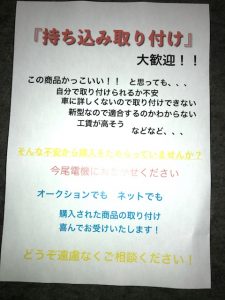 『持ち込み取り付け』
大歓迎！！
この商品かっこいい！！ と思っても、、、
自分で取り付けられるか不安
車に詳しくないので取り付けできない
新型なので適合するのかわからない
工賃が高そう
などなど、、、
そんな不安から購入をためらっていませんか？
今尾電機におまかせください
オークションでも ネットでも
購入された商品の取り付け
喜んでお受けいたします！
どうぞ遠慮なくご相談ください！